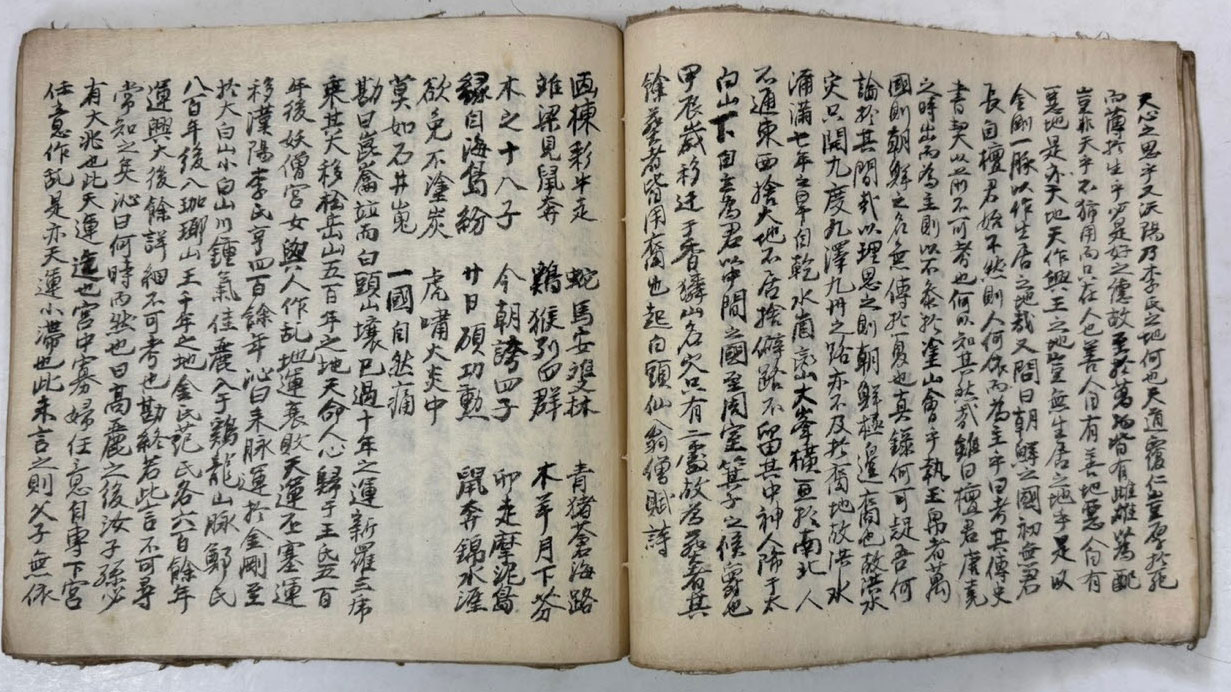 天心之思乎又沃陽乃李氏之地何也天道覆仁豈厚於死
而薄於生乎必是好之德故至於萬物皆有雌雄爲配
豈非天乎不獨用而只在人也善人自有善地惡人自有
惡地是亦天地天作興王之地豈無生居之地乎是以
金剛一脉以作生居之地哉又問曰朝鮮之國初無君
長自檀君始不然則人何依而爲主乎曰考其傳史
書契以前不可考也何以知其然哉雖曰檀君唐堯
之時出而爲主則以不參於塗山會乎執玉帛者萬
國則朝鮮之名無傳於夏也眞錄何可疑吾何
論於其間哉以理思之則朝鮮極邊裔也故洪水
災只開九度九澤九州之路亦不及於裔地故洪水
滿七年之旱自乾水崗巒大峯橫亘於南北人
不通東西捨大地不居捨僻路不留其中神人降于太
白山下自立爲君以中間之國至周室箕子之侯
甲辰歲移迁于香山名穴只有二處故爲蔘者其
餘蔘者皆用裔也起白頭仙翁僧賦詩
画棟彩牛走 蛇馬安雙林 青猪蒼海路
雖梁見鼠奔 鷄猴列四群 木羊月下芬
木之十八子 今朝誇四子 卯走摩泥島
緑自海島紛 廿日碩功勳 鼠奔錦水涯
欲免不塗炭 虎嘯大炎中
莫如石井嵬 一國自然痛
勘曰崑崙竝而白頭山壤已過十年之運新羅三席
乘其天移松岳山五百年之地天命人心歸于王氏五百
年後妖僧宮女與人作乱地運衰敗天運否塞運
移漢陽李氏亨四百餘年沁曰来脉運於金剛至
於大白山小白山川鍾氣佳麗入于鷄龍山脉鄭氏
八百年後入珈瑘山王千年之地金氏范氏各六百餘年
運興大後餘詳細不可考也勘終若此言不可尋
常知之矣沁曰何時而然也曰高麗之後汝子孫必
有大兆也此天運造也宮中寡婦任意自專下宮
任意作乱是亦天運小滯也此未言之則父子無依